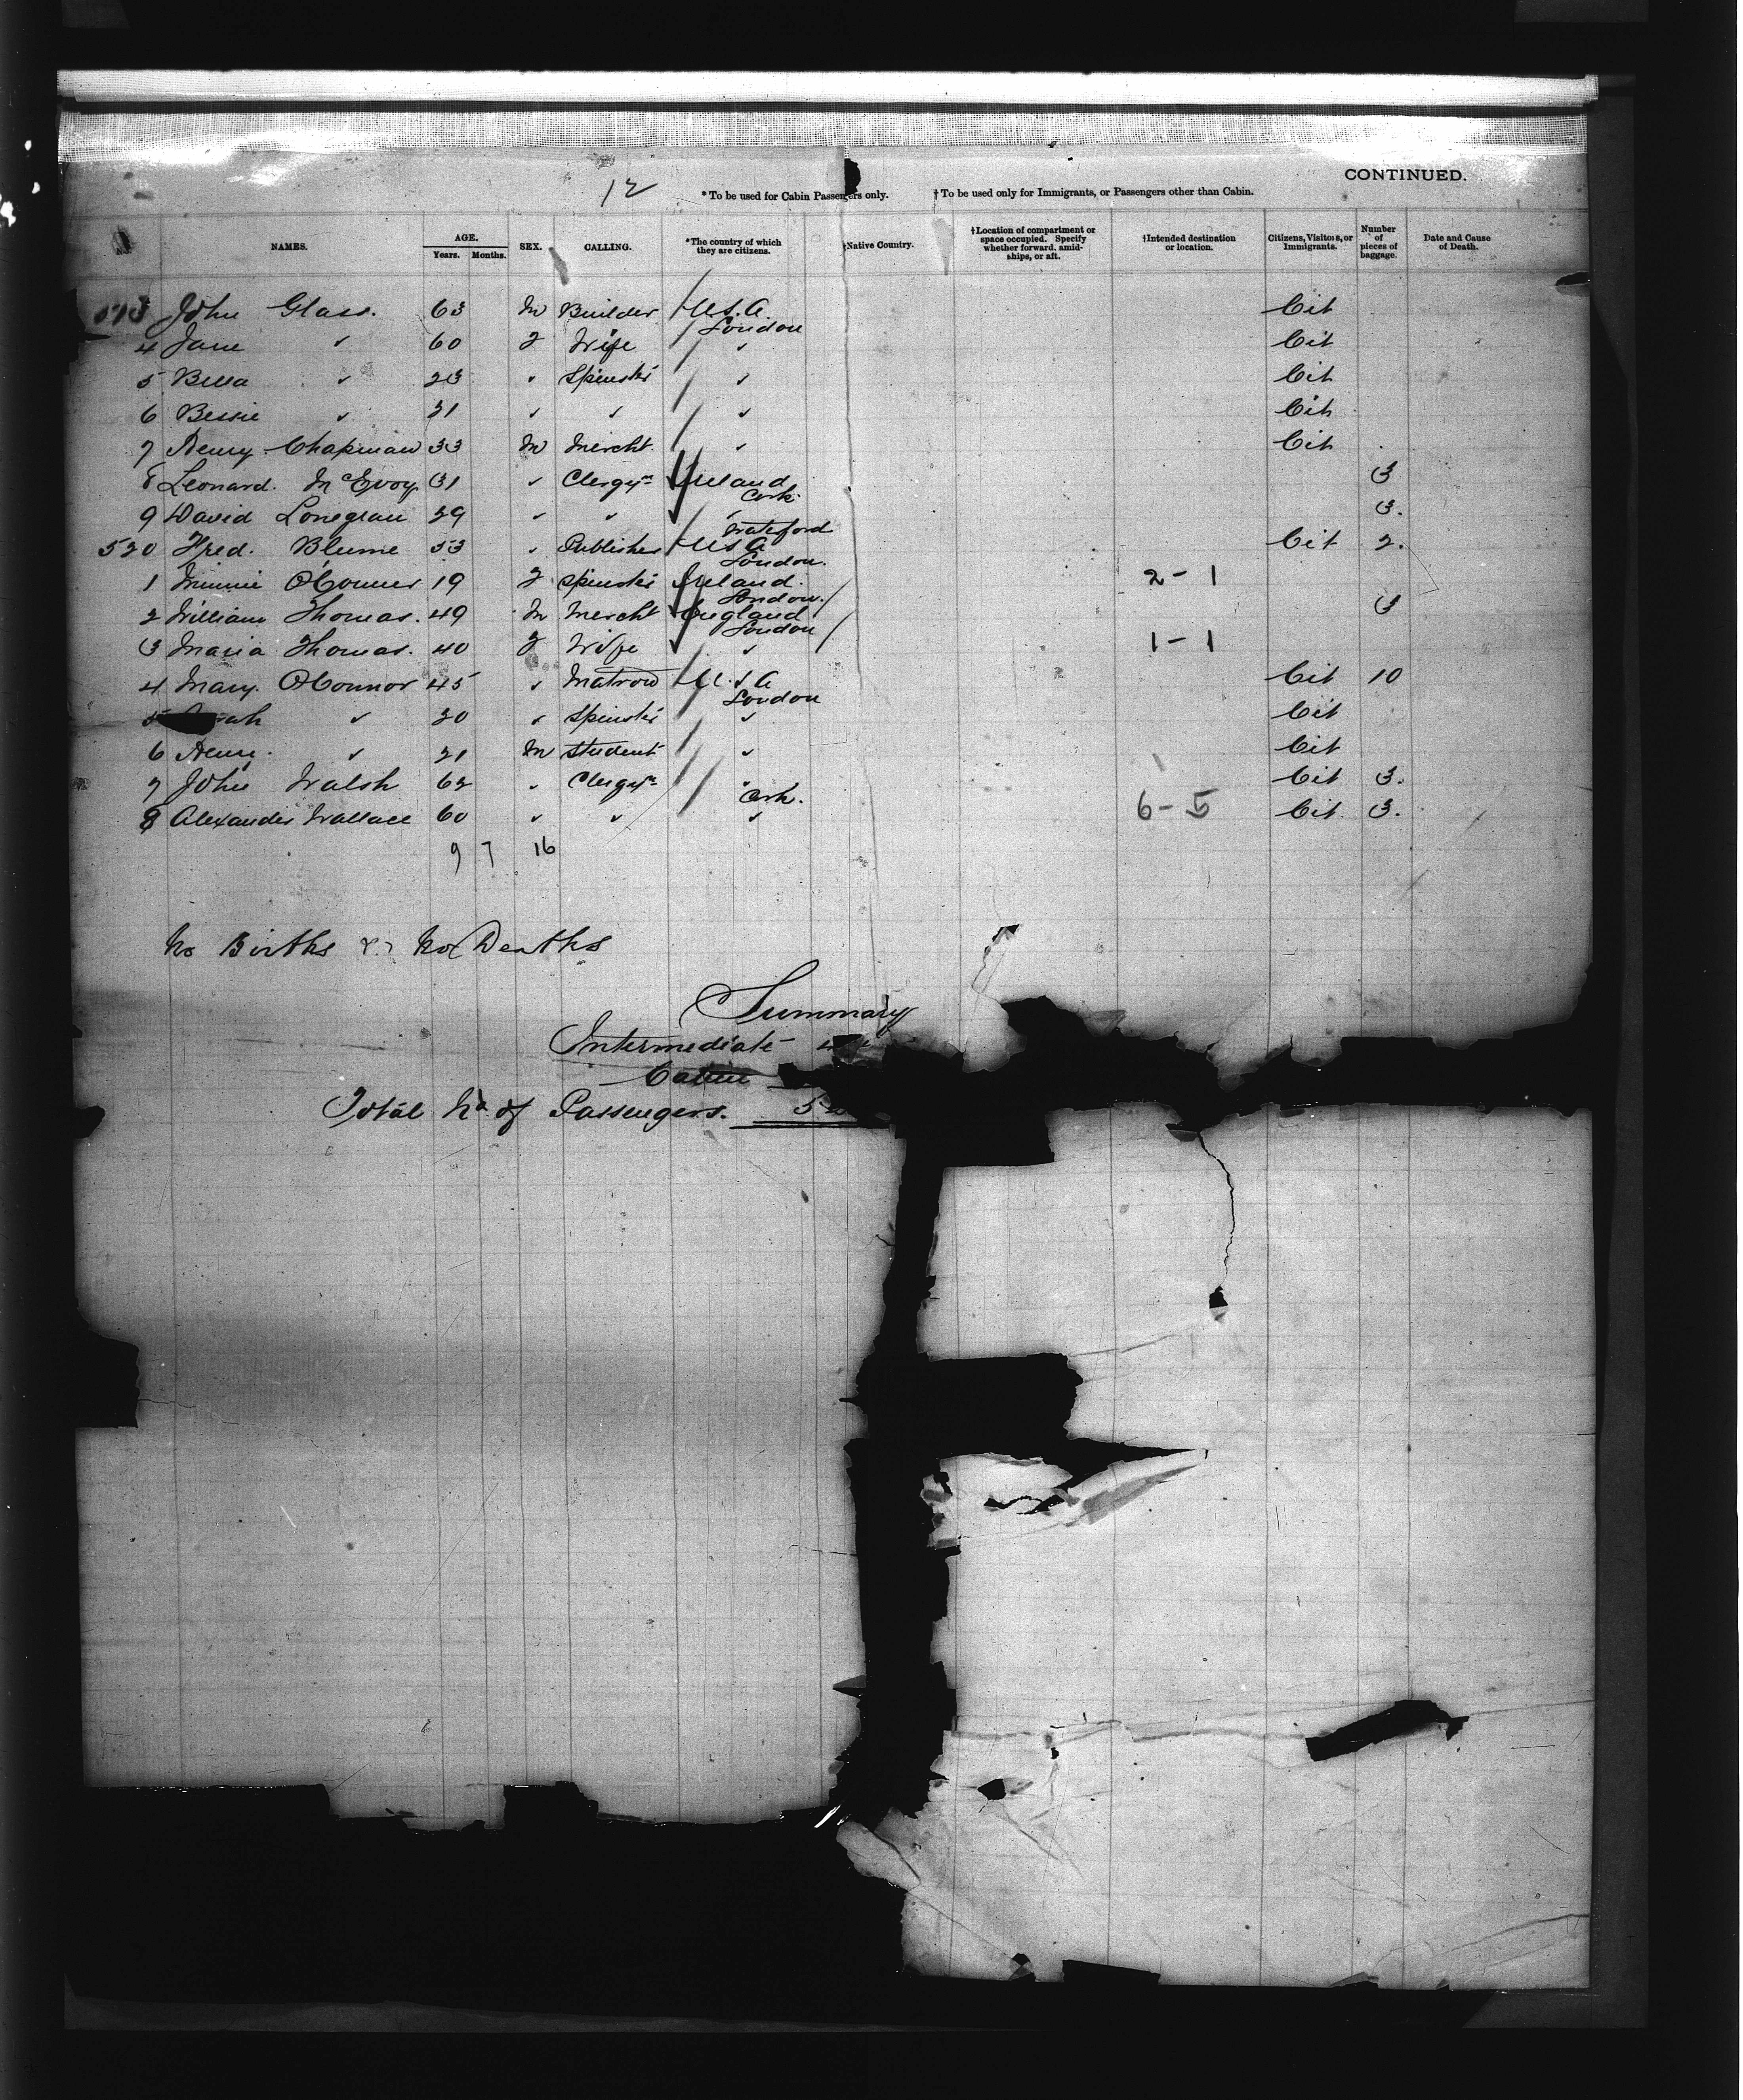 CONTINUED.
12
*To be used for Cabin Passengers only. †To be used only for Immigrants, or Passengers other than Cabin.
NAMES. AGE. Years. Months. SEX. CALLING. *The country of which they are citizens. †Native Country. †Location of compartment or space occupied. Specify whether forward, amidships, or aft. †Intended destination or location. Citizens, Visitors, or Immigrants. Number of pieces of baggage. Date and Cause of Death.
John Glass. 63 M Builder U.S.A. London Cit
4 Jane " 60 F Wife " Cit
5 Bella " 23 " Spinster " Cit
6 Bessie " 21 " " " Cit
7 Henry Chapman 33 M Mercht. " Cit
8 Leonard McEvoy 31 " Clergyn Ireland Cork 3
9 David Lonegrau 29 " " " Waterford 3.
520 Fred. Blume 53 " Publisher U S A London. Cit 2.
1 Minnie O'Connor 19 F Spinster Ireland. London. 2-1
2 William Thomas. 49 M Mercht England London 3
3 Maria Thomas. 40 F Wife " 1-1
4 Mary. O'Connor 45 " Matron U.S A London Cit 10
5 " 20 " Spinster " Cit
6 Henry. " 21 M Student " Cit
7 John Walsh 62 " Clergyn " Cork. Cit 3.
8 Alexander Wallace 60 " " " 6-5 Cit 3.
9 7 16
No Births & No Deaths
Summary
Intermediate
Cabin
Total No of Passengers.